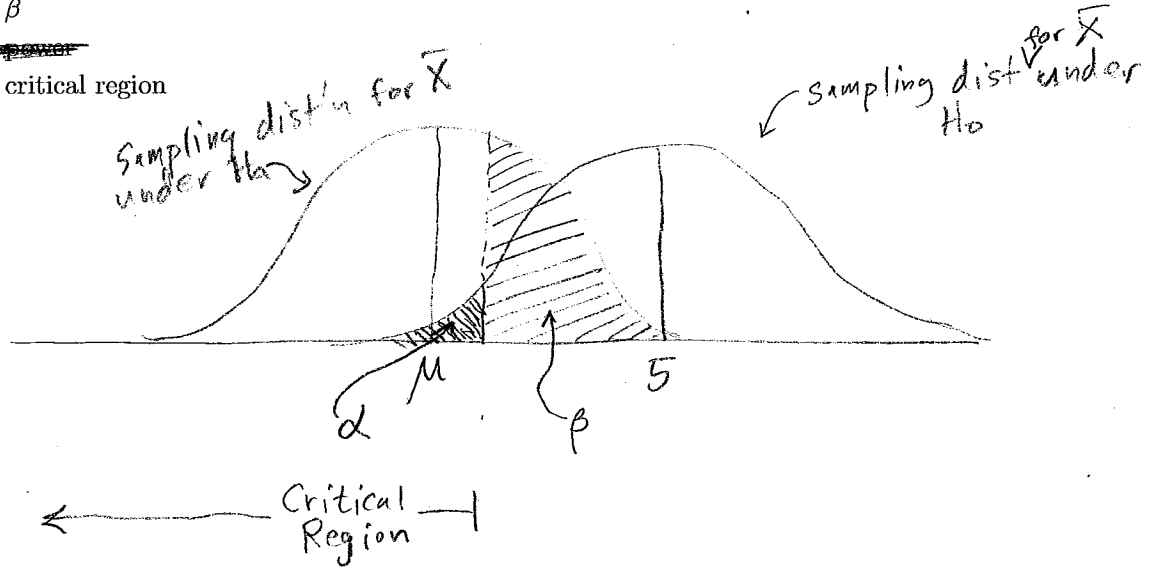 β
power
critical region
Sampling dist'n for X̄
under Ha
Sampling dist for X̄ under
Ho
α
μ
β
5
Critical
Region